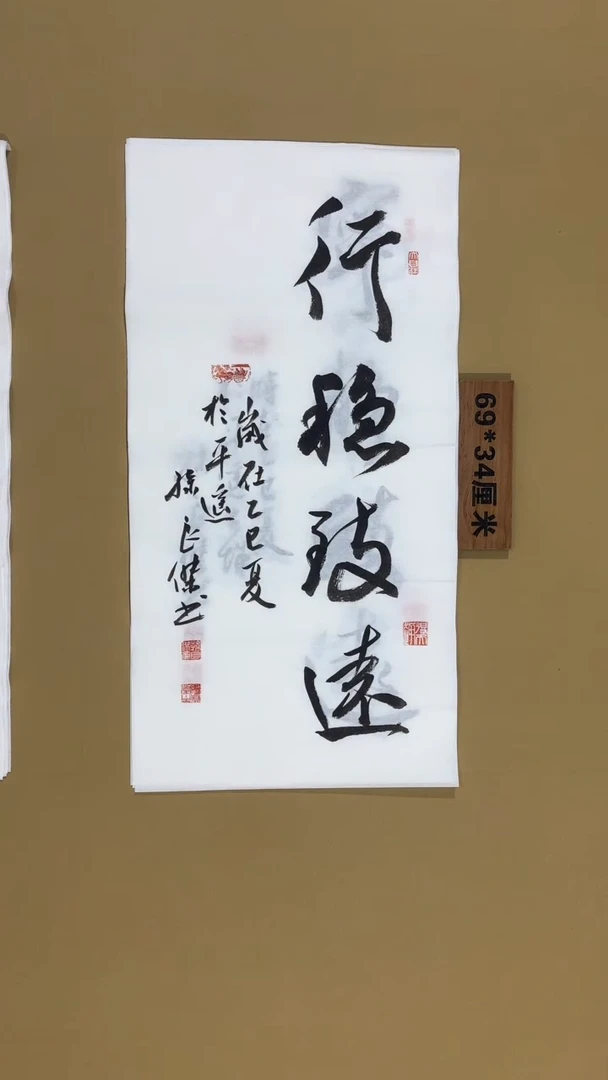 行稳致远
岁在乙巳夏
於平遥
孙良杰书
69*34厘米